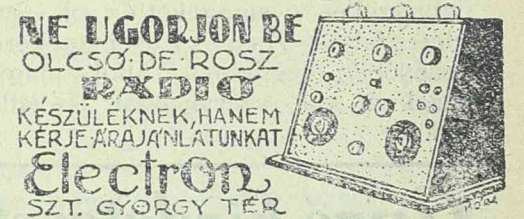 NE UGORJON BE
OLCSÓ·DE·ROSZ
RÁDIÓ
KÉSZÜLÉKNEK, HANEM
KÉRJE·ÁRAJÁNLATUNKAT
ElectrOn
SZT. GYÖRGY TÉR